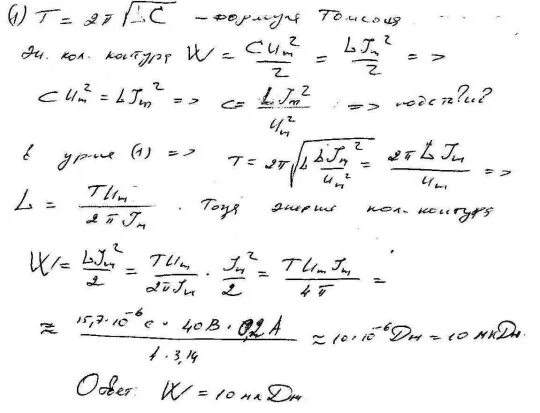 (1) T = 2π√LC – формула Томсона
Эн. кол. контура W = CUm²/2 = LJm²/2 =>
CUm² = LJm² => C = LJm²/Um² => подст?и?
в урие (1) => T = 2π√(L LJm²/Um²) = 2πLJm/Um =>
L = TUm/2πJm . Тогда энергия кол. контура
W = LJm²/2 = TUm/2πJm · Jm²/2 = TUmJm/4π =
≈ 15,7·10⁻⁶c · 40В · 0,2А / 4·3,14 ≈ 10·10⁻⁶Дж = 10 мкДж.
Ответ: W = 10 мкДж